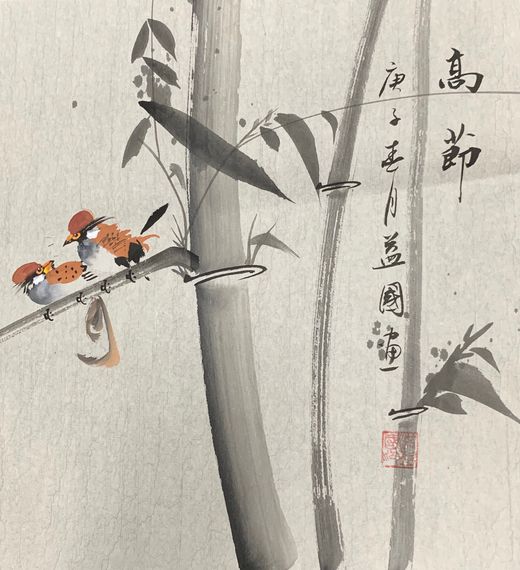 高節
庚子春月益國畫